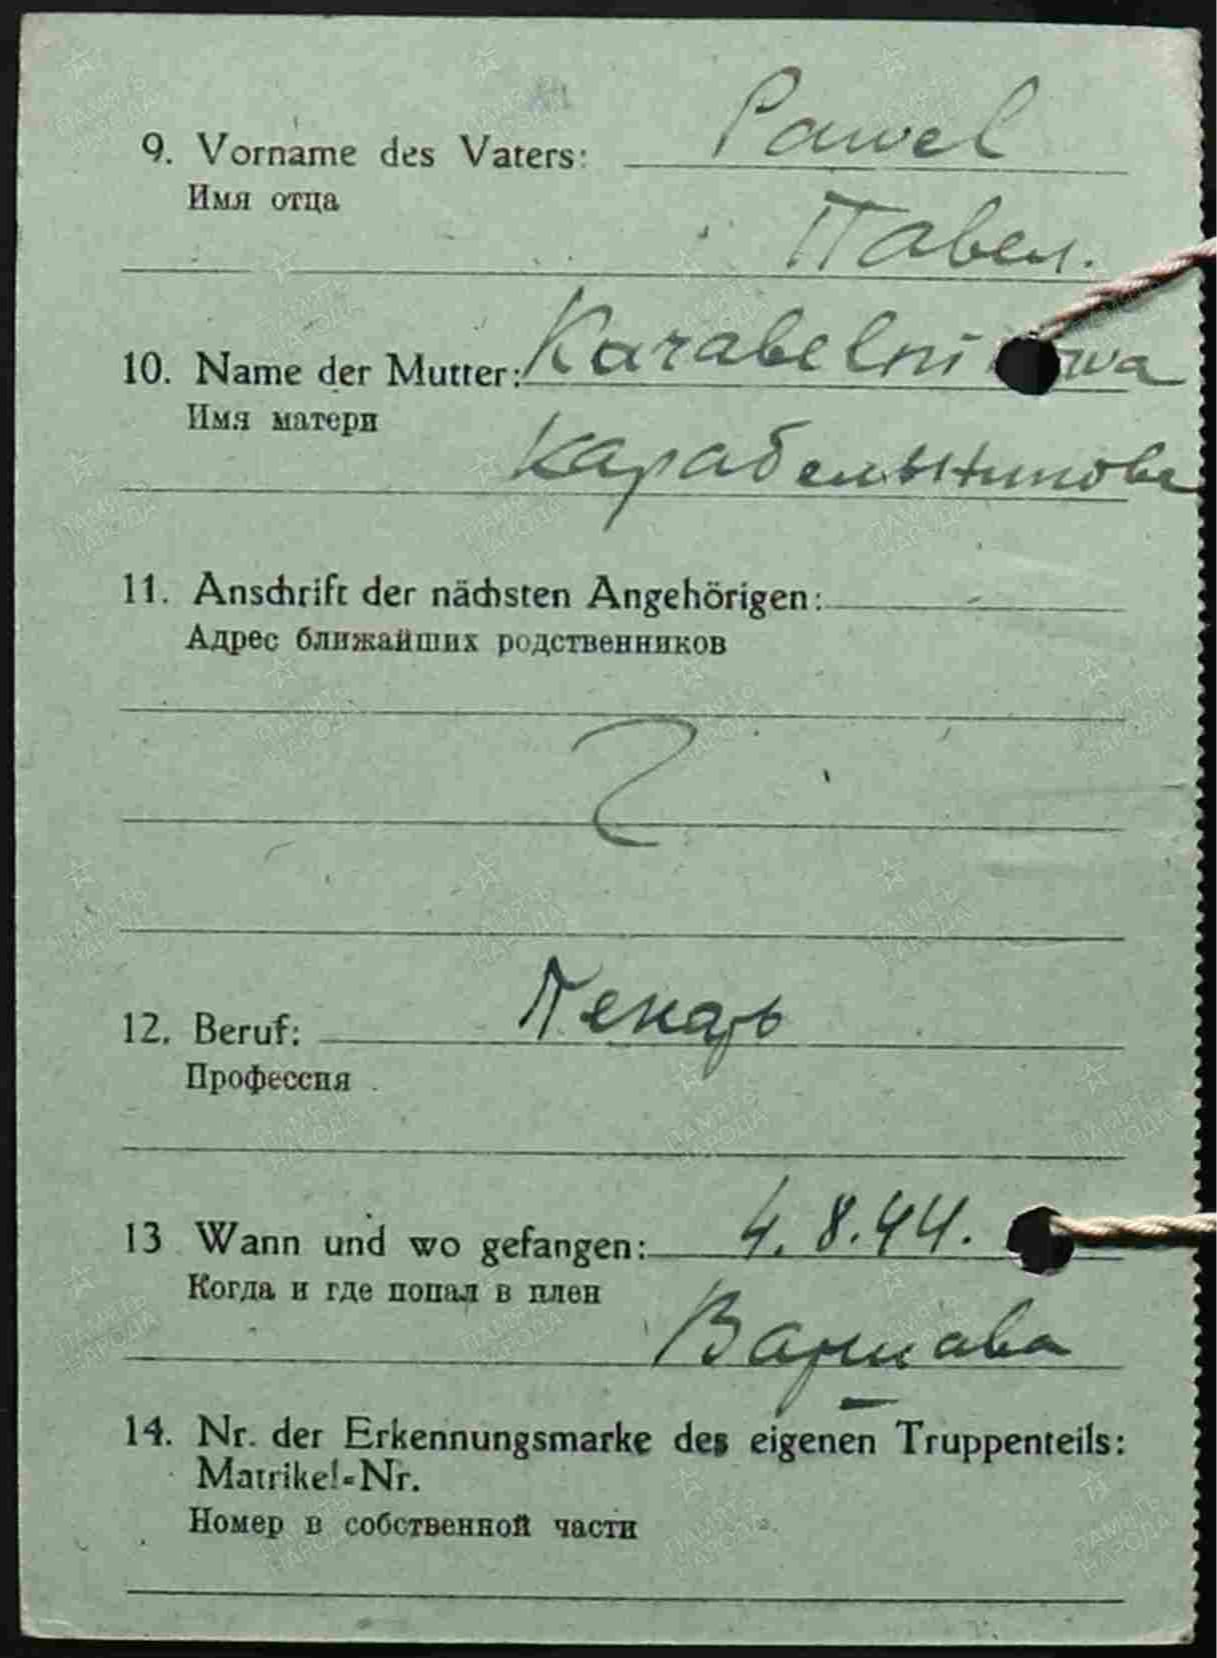 9. Vorname des Vaters: Pawel
Имя отца
Павел.
10. Name der Mutter: Karabelni wa
Имя матери
Карабельникова
11. Anschrift der nächsten Angehörigen:
Адрес ближайших родственников
?
12. Beruf: Пекарь
Профессия
13 Wann und wo gefangen: 4.8.44.
Когда и где попал в плен
Варшава
14. Nr. der Erkennungsmarke des eigenen Truppenteils:
Matrikel-Nr.
Номер в собственной части
ПАМЯТЬ НАРОДА